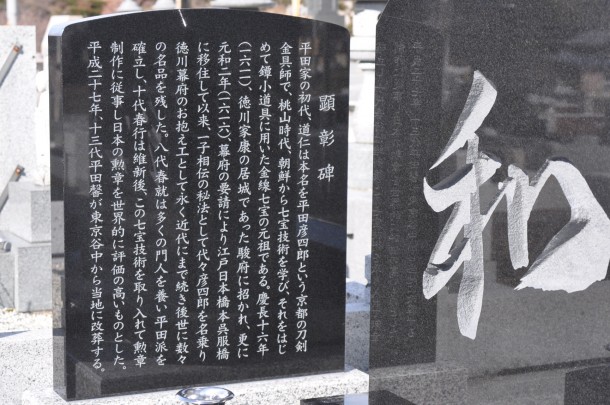 顕彰碑
平田家の初代、道仁は本名を平田彦四郎という京都の刀剣
金具師で、桃山時代、朝鮮から七宝技術を学び、それをはじ
めて鐔小道具に用いた金線七宝の元祖である。慶長十六年
(一六一一)、徳川家康の居城であった駿府に招かれ、更に
元和二年(一六一六)、幕府の要請により江戸日本橋本呉服橋
に移住して以来、一子相伝の秘法として代々彦四郎を名乗り
徳川幕府のお抱え工として永く近代にまで続き後世に数々
の名品を残した。八代春就は多くの門人を養い平田派を
確立し、十代春行は維新後、この七宝技術を取り入れて勲章
制作に従事し日本の勲章を世界的に評価の高いものとした。
平成二十七年、十三代平田馨が東京谷中から当地に改葬する。
和